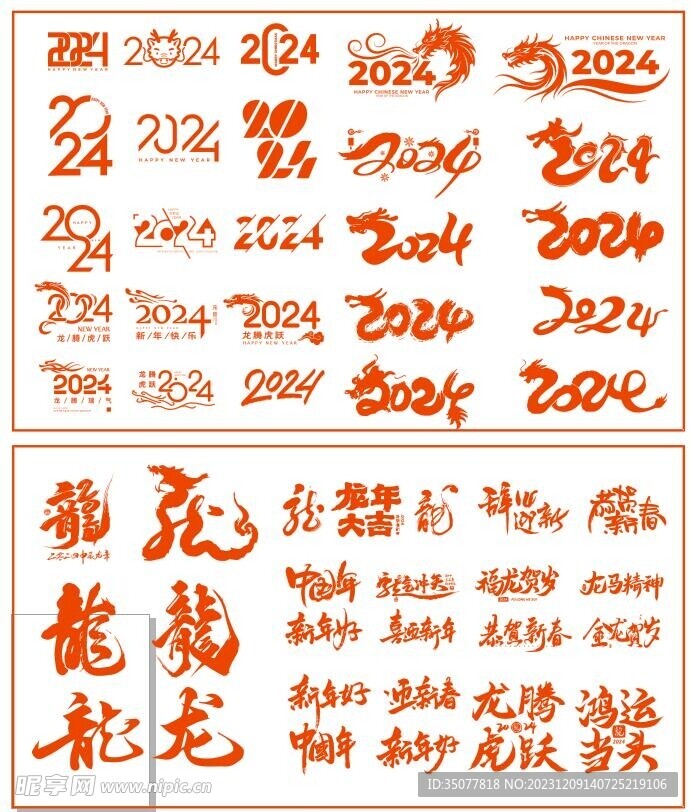 2024
HAPPY NEW YEAR
2024
2024
2024
HAPPY CHINESE NEW YEAR
YEAR OF THE DRAGON
HAPPY CHINESE NEW YEAR
YEAR OF THE DRAGON
2024
2024
2024
HAPPY NEW YEAR
2024
2024
2024
2024
HAPPY
YEAR
2024
2024
2024
2024
2024
NEW YEAR
龙/腾/虎/跃
2024
新/年/快/乐
2024
龙腾虎跃
HAPPY NEW YEAR
2024
2024
NEW YEAR
2024
龙/腾/瑞/气
龙腾
虎跃
2024
2024
2024
2024
龍
二零二四甲辰龙年
龙
龍
龍
龍
龙
龙
龙年
大吉
龍
辞旧
迎新
恭贺
新春
中国年
福龙贺岁
龙马精神
新年好
喜迎新年
恭贺新春
金龙贺岁
新年好
迎新春
龙腾
2024
虎跃
鸿运
当头
龍
2024
中国年
新年好
昵享网 www.nipic.cn
ID:35077818 NO:20231209140725219106